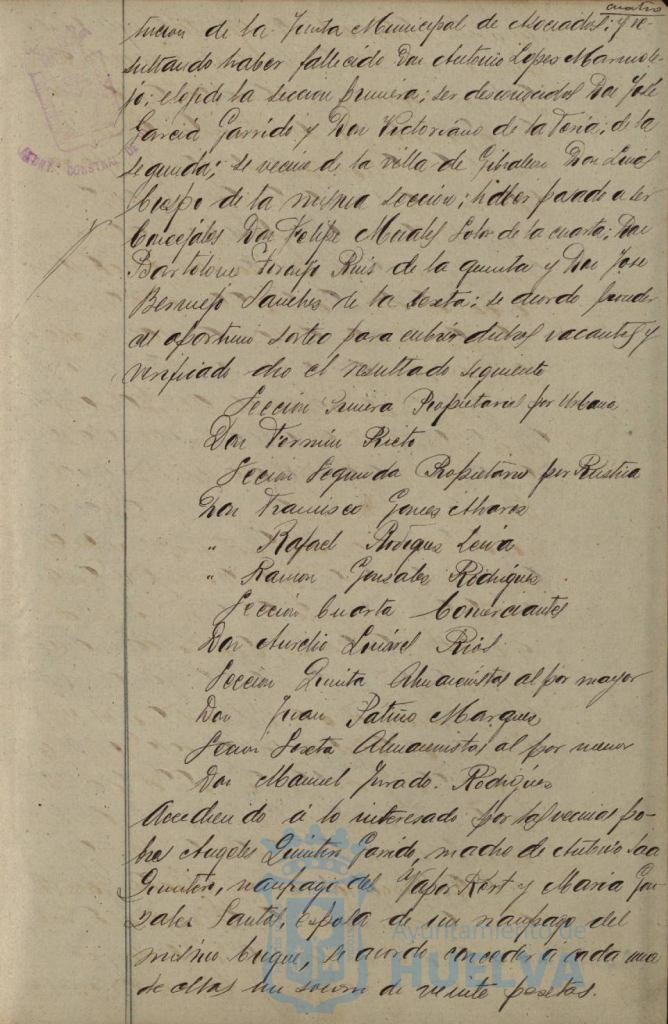 cuatro
tucion de la Junta Municipal de Asociados; y re-
sultando haber fallecido Don Antonio Lopez Marmole-
jo; elegido la seccion primera; ser desconocidos Don José
Garcia Garrido y Don Victoriano de la de la
segunda; se vecino de la villa de Gibraleon Don Luis
Crespo de la misma seccion; haber pasado a ser
Concejales Don Felipe Morales Soto de la cuarta; Don
Bartolome Ruis de la quinta y Don Jose
Bermejo Sanches de la sexta; se acordo proceder
al oportuno sorteo para cubrir dichas vacantes y
verificado dio el resultado siguiente
Seccion Primera Propietarios por Urbana
Don Fermin Rieto
Seccion Segunda Propietarios por Rustica
Don Francisco Gomes Alvares
" Rafael Rodrigues Leiva
" Ramon Gonzales Rodrigues
Seccion Cuarta Comerciantes
Don Aurelio Linares Rios
Seccion Quinta Almacenistas al por mayor
Don Juan Patiño Marques
Seccion Sexta Almacenistas al por menor
Don Manuel Jurado Rodrigues
Accediendo á lo interesado por las vecinas po-
bres Angeles Quintero Garrido, madre de Antonio
Quintero, naufrago del Vapor y Maria Gon-
zales Santos, esposa de un naufrago del
mismo buque, se acordo conceder a cada una
de ellas un socorro de veinte pesetas.
Ayuntamiento de
HUELVA